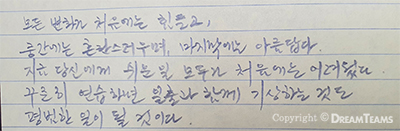 모든 변화가 처음에는 힘들고,
중간에는 혼란스러우며, 마지막에는 아름답다.
지금 당신에게 쉬운 일 모두가 처음에는 어려웠다.
꾸준히 연습하면 일출과 함께 기상하는 것도
평범한 일이 될 것이다.
Copyright © DREAMTEAMS